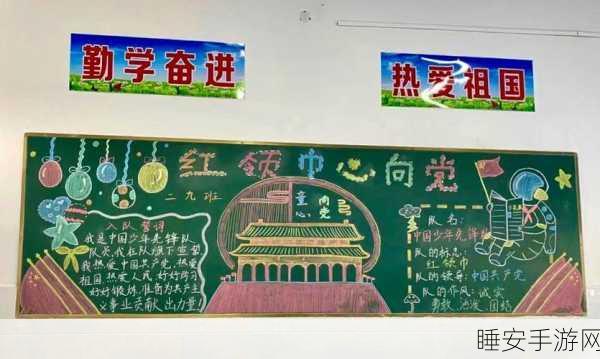 勤学奋进
热爱祖国
红领巾心向党
二九班
童心向党
入队誓词
我是中国少年先锋队
队员,我在队旗下宣誓
我热爱中国共产党,热爱
祖国,热爱人民,好好学习
好好锻炼,准备为共产主
义事业贡献出力量!
队名:
中国少年先锋队
队的标志:
红领巾
队的领导:中国共产党
队的作风:诚实
勇敢、活泼、团结
睡安手游网